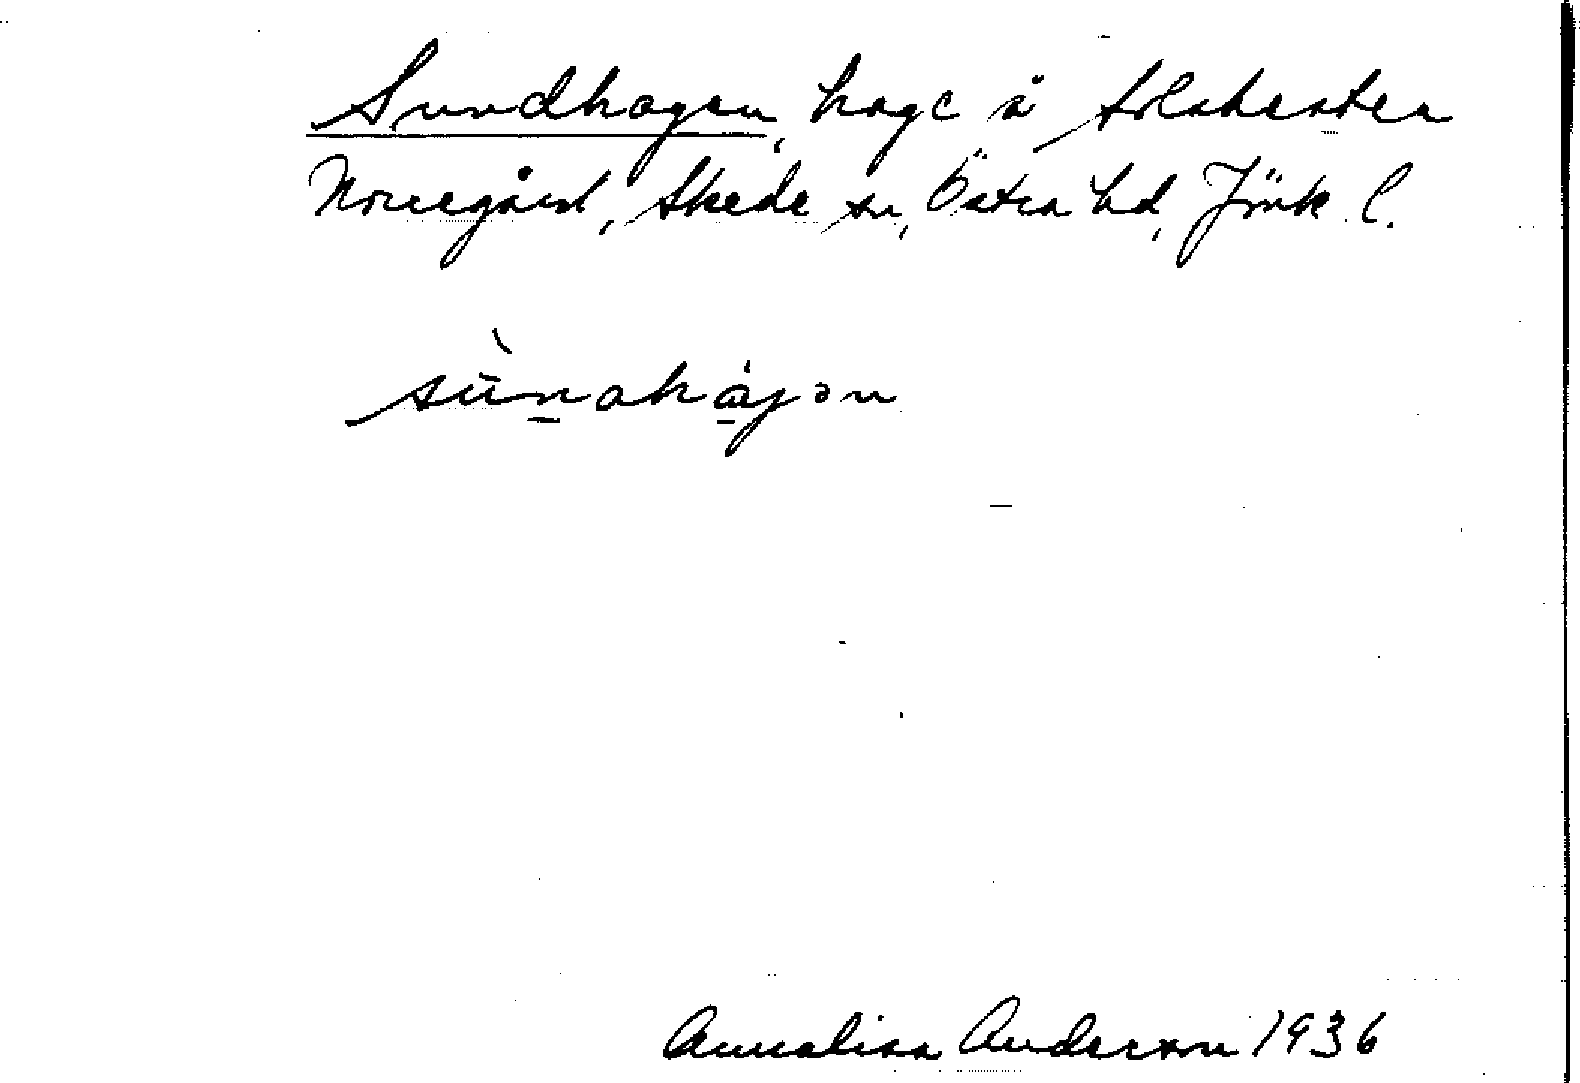 Sundhagen, hage å
Norregård, Skede sn, Östra hd, Jönk l.
sùnahágən
Annalisa Anderson 1936